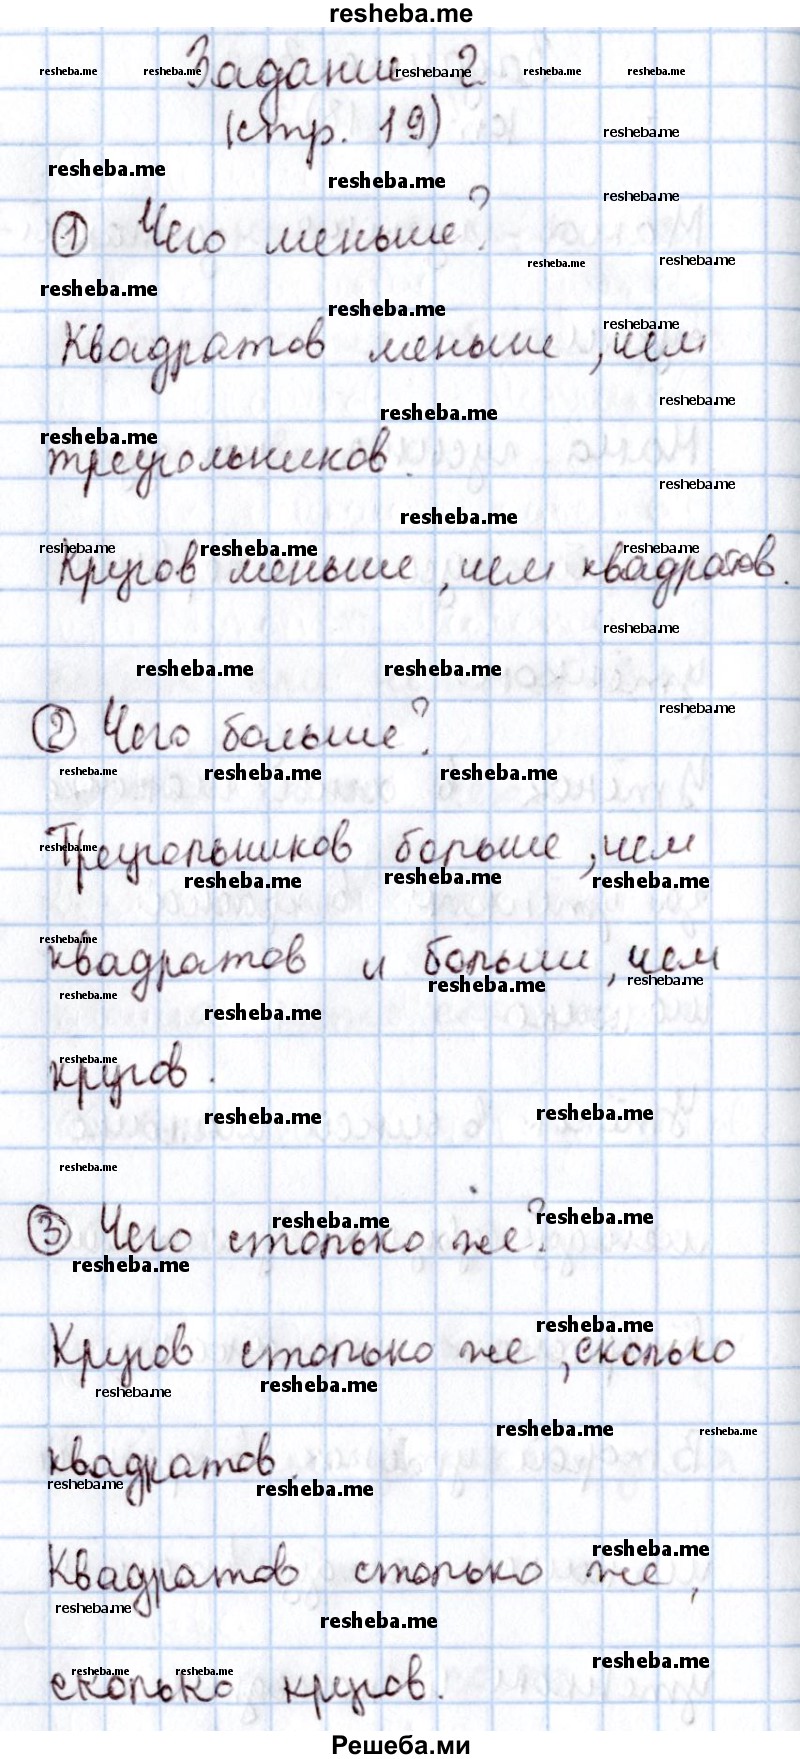 resheba.me
Задание 2
(стр. 19)
① Чего меньше?
Квадратов меньше, чем
треугольников.
Кругов меньше, чем квадратов.
② Чего больше?
Треугольников больше, чем
квадратов и больше, чем
кругов.
③ Чего столько же?
Кругов столько же, сколько
квадратов.
Квадратов столько же,
сколько кругов.
Решеба.ми